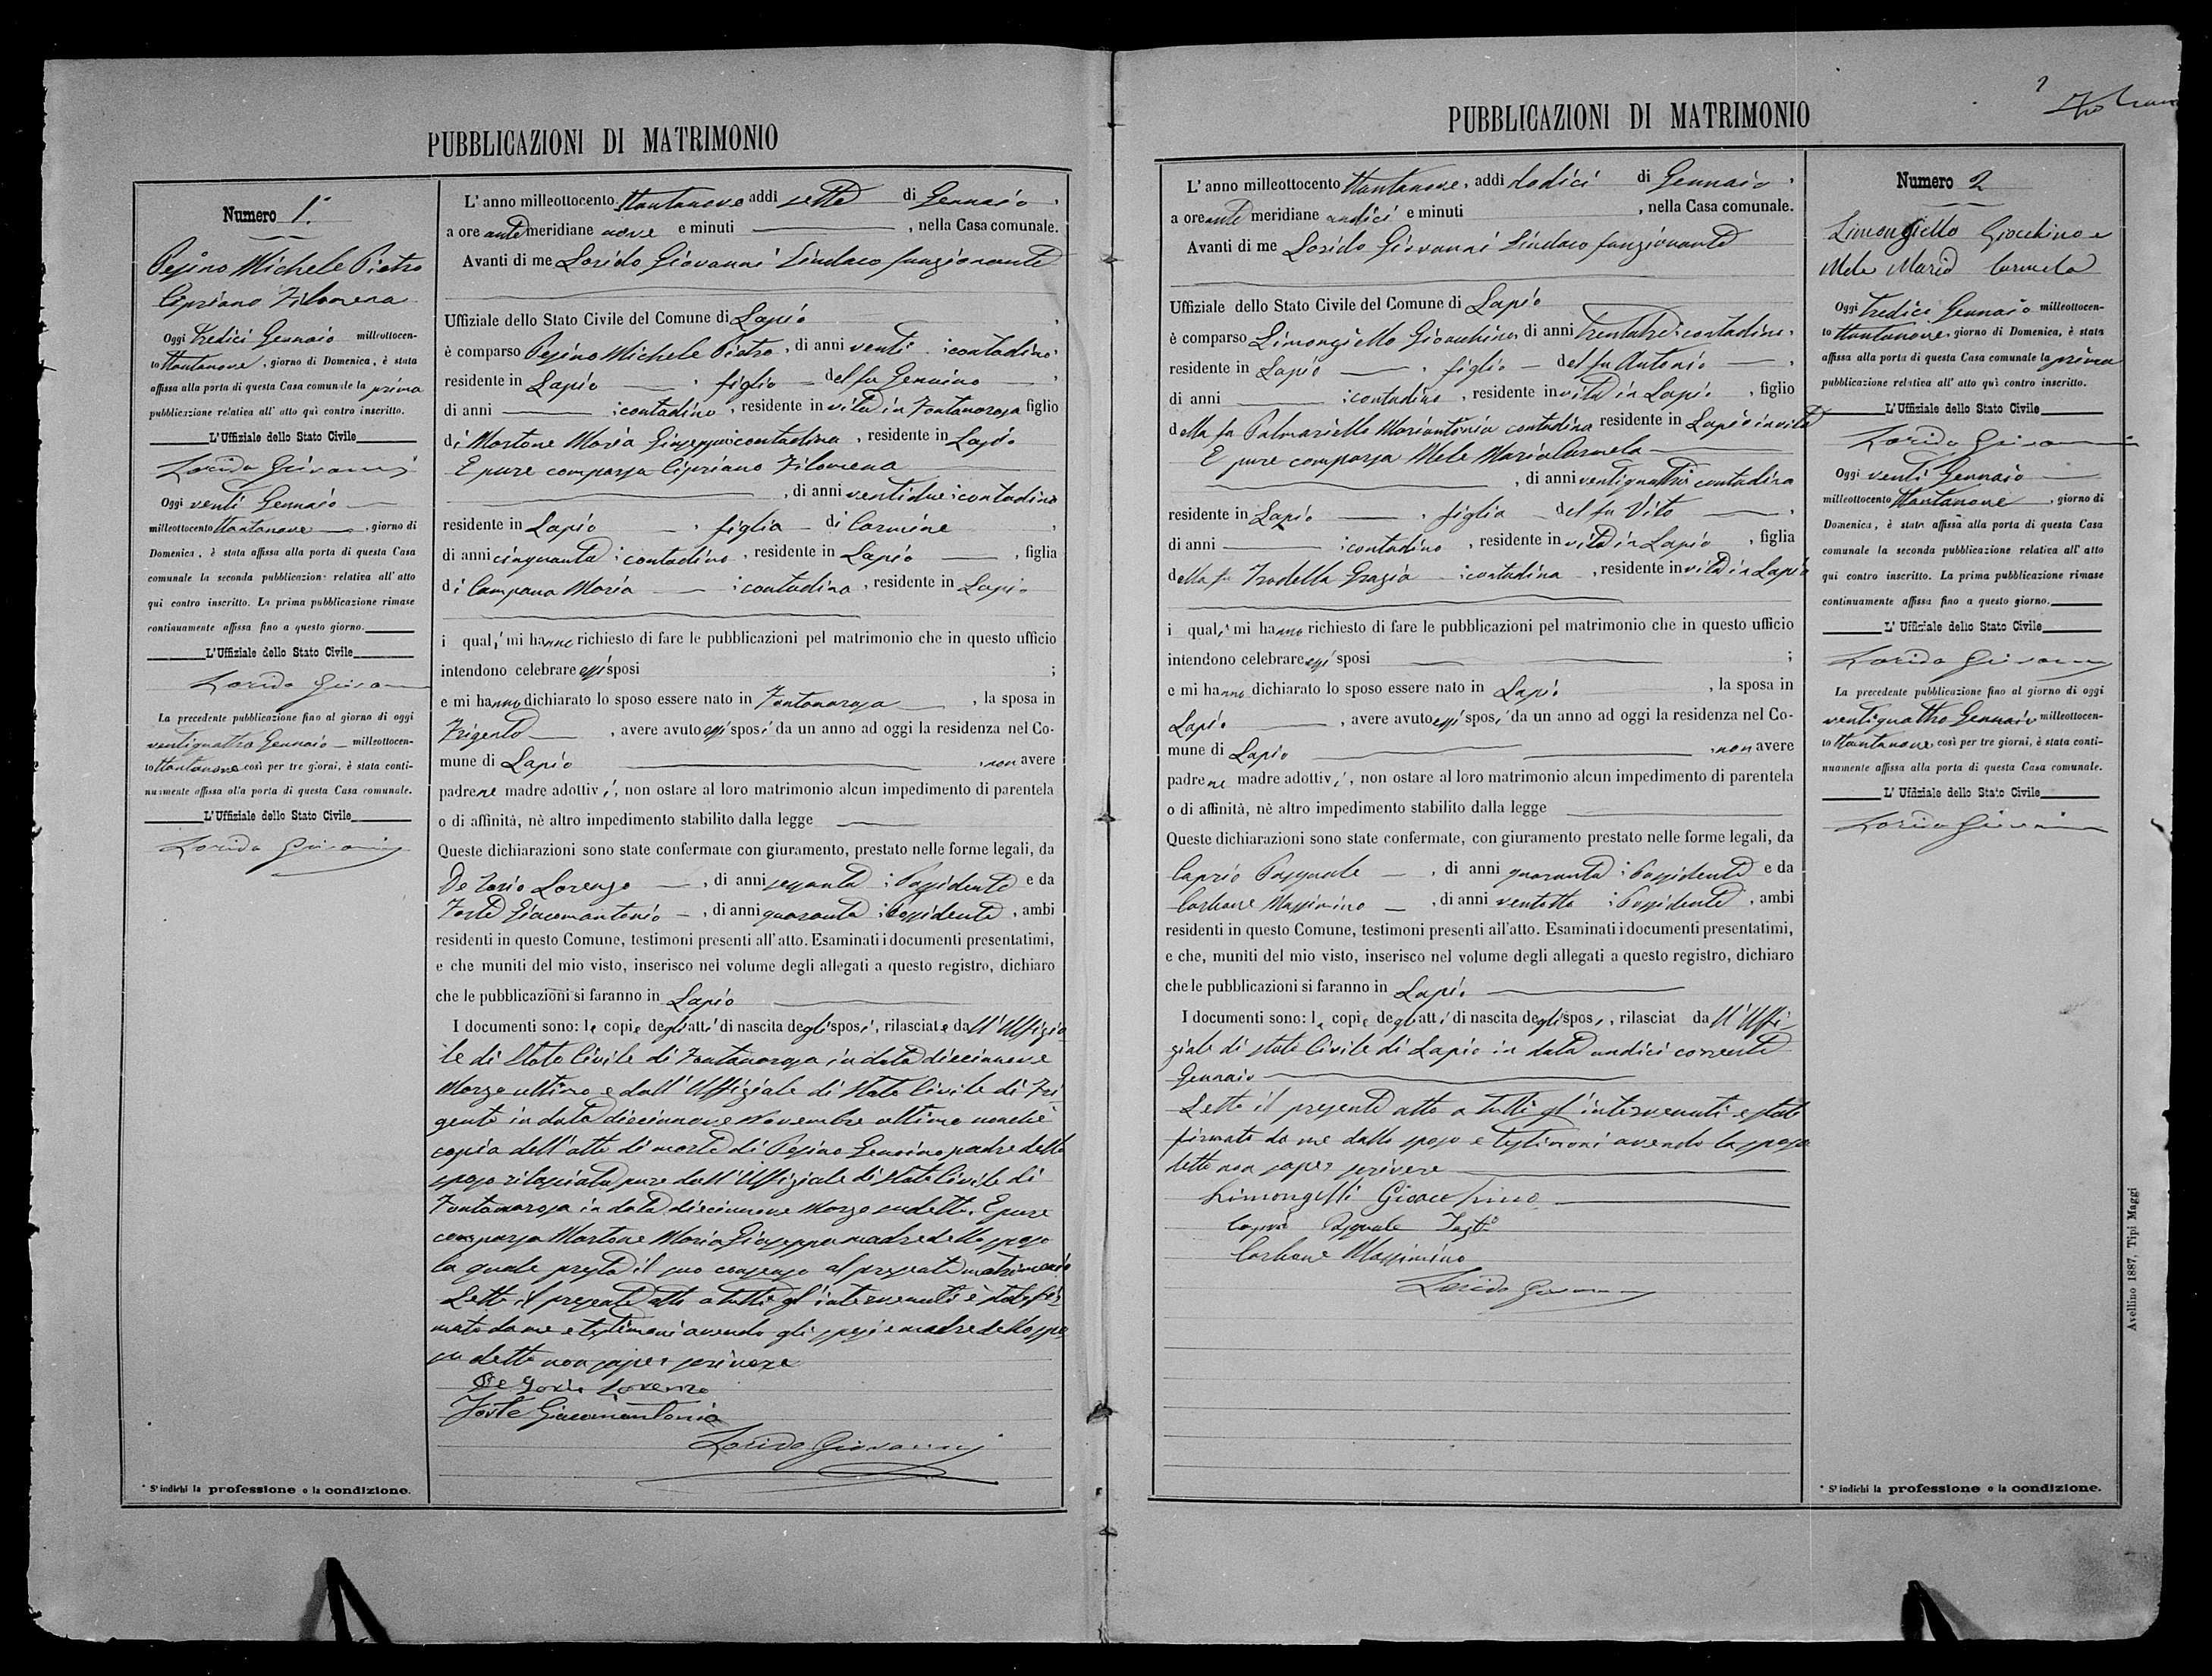 PUBBLICAZIONI DI MATRIMONIO
Numero 1.°
Pesino Michele Pietro
Cipriano Filomena
Oggi tredici Gennaio milleottocen-
to ttantanove, giorno di Domenica, è stata
affissa alla porta di questa Casa comunale la prima
pubblicazione relativa all' atto qui contro inscritto.
L'Uffiziale dello Stato Civile
Lorido Giovanni
Oggi venti Gennaio
milleottocento ttantanove, giorno di
Domenica, è stata affissa alla porta di questa Casa
comunale la seconda pubblicazione relativa all' atto
qui contro inscritto. La prima pubblicazione rimase
continuamente affissa fino a questo giorno.
L'Uffiziale dello Stato Civile
Lorido Giovanni
La precedente pubblicazione fino al giorno di oggi
ventiquattro Gennaio milleottocen-
to ttantanove così per tre giorni, è stata conti-
nuamente affissa alla porta di questa Casa comunale.
L'Uffiziale dello Stato Civile
Lorido Giovanni
* S'indichi la professione o la condizione.
L' anno milleottocento ttantanove addì sette di Gennaio,
a ore ante meridiane nove e minuti , nella Casa comunale.
Avanti di me Lorido Giovanni Sindaco funzionante
Uffiziale dello Stato Civile del Comune di Lapio,
è comparso Pesino Michele Pietro, di anni venti ; contadino,
residente in Lapio, figlio del fu Genuino,
di anni ; contadino, residente in vita in Fontanarosa figlio
di Martone Maria Giuseppa contadina, residente in Lapio
E pure comparsa Cipriano Filomena
, di anni ventidue ; contadina
residente in Lapio, figlia di Carmine,
di anni cinquanta ; contadino, residente in Lapio, figlia
di Campana Maria ; contadina, residente in Lapio
i quali mi hanno richiesto di fare le pubblicazioni pel matrimonio che in questo ufficio
intendono celebrare essi sposi ;
e mi hanno dichiarato lo sposo essere nato in Fontanarosa, la sposa in
Frigento, avere avuto essi sposi da un anno ad oggi la residenza nel Co-
mune di Lapio, non avere
padre ne madre adottivi, non ostare al loro matrimonio alcun impedimento di parentela
o di affinità, nè altro impedimento stabilito dalla legge
Queste dichiarazioni sono state confermate con giuramento, prestato nelle forme legali, da
De Iorio Lorenzo, di anni sessanta ; Possidente e da
Forte Giacomantonio, di anni quaranta ; Possidente, ambi
residenti in questo Comune, testimoni presenti all'atto. Esaminati i documenti presentatimi,
e che muniti del mio visto, inserisco nel volume degli allegati a questo registro, dichiaro
che le pubblicazioni si faranno in Lapio
I documenti sono: le copie degli atti di nascita degli sposi, rilasciate dall' Uffizia
le di Stato Civile di Fontanarosa in data diecinnove
Marzo ultimo e dall' Uffiziale di Stato Civile di Fri
gento in data diecinnove Novembre ultimo nonchè
copia dell'atto di morte di Pesino Genuino padre dello
sposo rilasciata pure dall' Uffiziale di Stato Civile di
Fontanarosa in data diecinnove Marzo sudetto. E pure
comparsa Martone Maria Giuseppa madre dello sposo
la quale presta il suo consenso al presente matrimonio
Letto il presente atto a tutti gl' intervenuti è stato fir
mato da me e testimoni avendo gli sposi e madre dello spo
so detto non saper scrivere
De Iorio Lorenzo
Forte Giacomantonio
Lorido Giovanni
PUBBLICAZIONI DI MATRIMONIO
L' anno milleottocento ttantanove, addì dodici di Gennaio,
a ore ante meridiane undici e minuti , nella Casa comunale.
Avanti di me Lorido Giovanni Sindaco funzionante
Uffiziale dello Stato Civile del Comune di Lapio
è comparso Limongiello Gioacchino, di anni trentatre ; contadino,
residente in Lapio, figlio del fu Antonio,
di anni ; contadino, residente in vita in Lapio, figlio
della fu Palmariello Mariantonia contadina residente in Lapio in vita
E pure comparsa Mele Maria Carmela
, di anni ventiquattro contadina
residente in Lapio, figlia del fu Vito,
di anni ; contadino, residente in vita in Lapio, figlia
della fu Trodella Grazia ; contadina, residente in vita in Lapio
i quali mi hanno richiesto di fare le pubblicazioni pel matrimonio che in questo ufficio
intendono celebrare essi sposi ;
e mi hanno dichiarato lo sposo essere nato in Lapio, la sposa in
Lapio, avere avuto essi sposi da un anno ad oggi la residenza nel Co-
mune di Lapio, non avere
padre ne madre adottivi, non ostare al loro matrimonio alcun impedimento di parentela
o di affinità, nè altro impedimento stabilito dalla legge
Queste dichiarazioni sono state confermate, con giuramento prestato nelle forme legali, da
Caprio Pasquale, di anni quaranta ; Possidente e da
Carbone Massimino, di anni ventotto ; Possidente, ambi
residenti in questo Comune, testimoni presenti all'atto. Esaminati i documenti presentatimi,
e che, muniti del mio visto, inserisco nel volume degli allegati a questo registro, dichiaro
che le pubblicazioni si faranno in Lapio
I documenti sono: le copie degli atti di nascita degli sposi, rilasciat dall' Uffi-
ziale di stato Civile di Lapio in data undici corrente
Gennaio
Letto il presente atto a tutti gl' intervenuti e stato
firmato da me dallo sposo e testimoni avendo la sposa
detto non saper scrivere
Limongelli Gioacchino
Caprio Pasquale Test.°
Carbone Massimino
Lorido Giovanni
Numero 2
Limongiello Giocchino e
Mele Maria Carmela
Oggi tredici Gennaio milleottocen-
to ttantanove, giorno di Domenica, è stata
affissa alla porta di questa Casa comunale la prima
pubblicazione relativa all' atto quì contro inscritto.
L'Uffiziale dello Stato Civile
Lorido Giovanni
Oggi venti Gennaio
milleottocento ttantanove, giorno di
Domenica, è stata affissa alla porta di questa Casa
comunale la seconda pubblicazione relativa all' atto
qui contro inscritto. La prima pubblicazione rimase
continuamente affissa fino a questo giorno.
L' Uffiziale dello Stato Civile
Lorido Giovanni
La precedente pubblicazione fino al giorno di oggi
ventiquattro Gennaio milleottocen-
to ttantanove così per tre giorni, è stata conti-
nuamente affissa alla porta di questa Casa comunale.
L' Uffiziale dello Stato Civile
Lorido Giovanni
* S'indichi la professione o la condizione.
Avellino 1887, Tipi Maggi